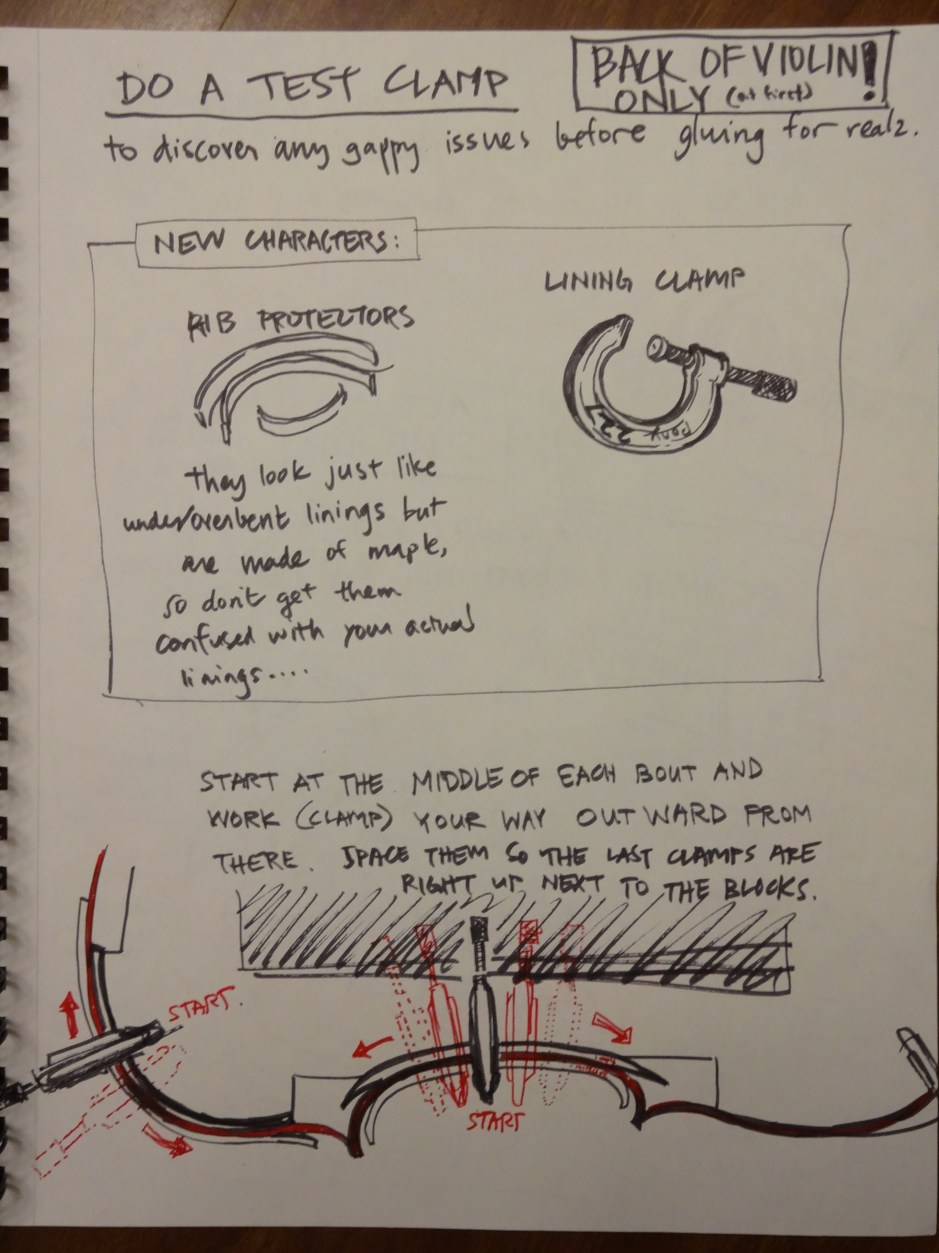 DO A TEST CLAMP
BACK OF VIOLIN!
ONLY (at first)
to discover any gappy issues before gluing for realz.
NEW CHARACTERS:
RIB PROTECTORS
LINING CLAMP
Pony 22
they look just like
under/overbent linings but
are made of maple,
so don't get them
confused with your actual
linings....
START AT THE MIDDLE OF EACH BOUT AND
WORK (CLAMP) YOUR WAY OUTWARD FROM
THERE. SPACE THEM SO THE LAST CLAMPS ARE
RIGHT UP NEXT TO THE BLOCKS.
START.
START